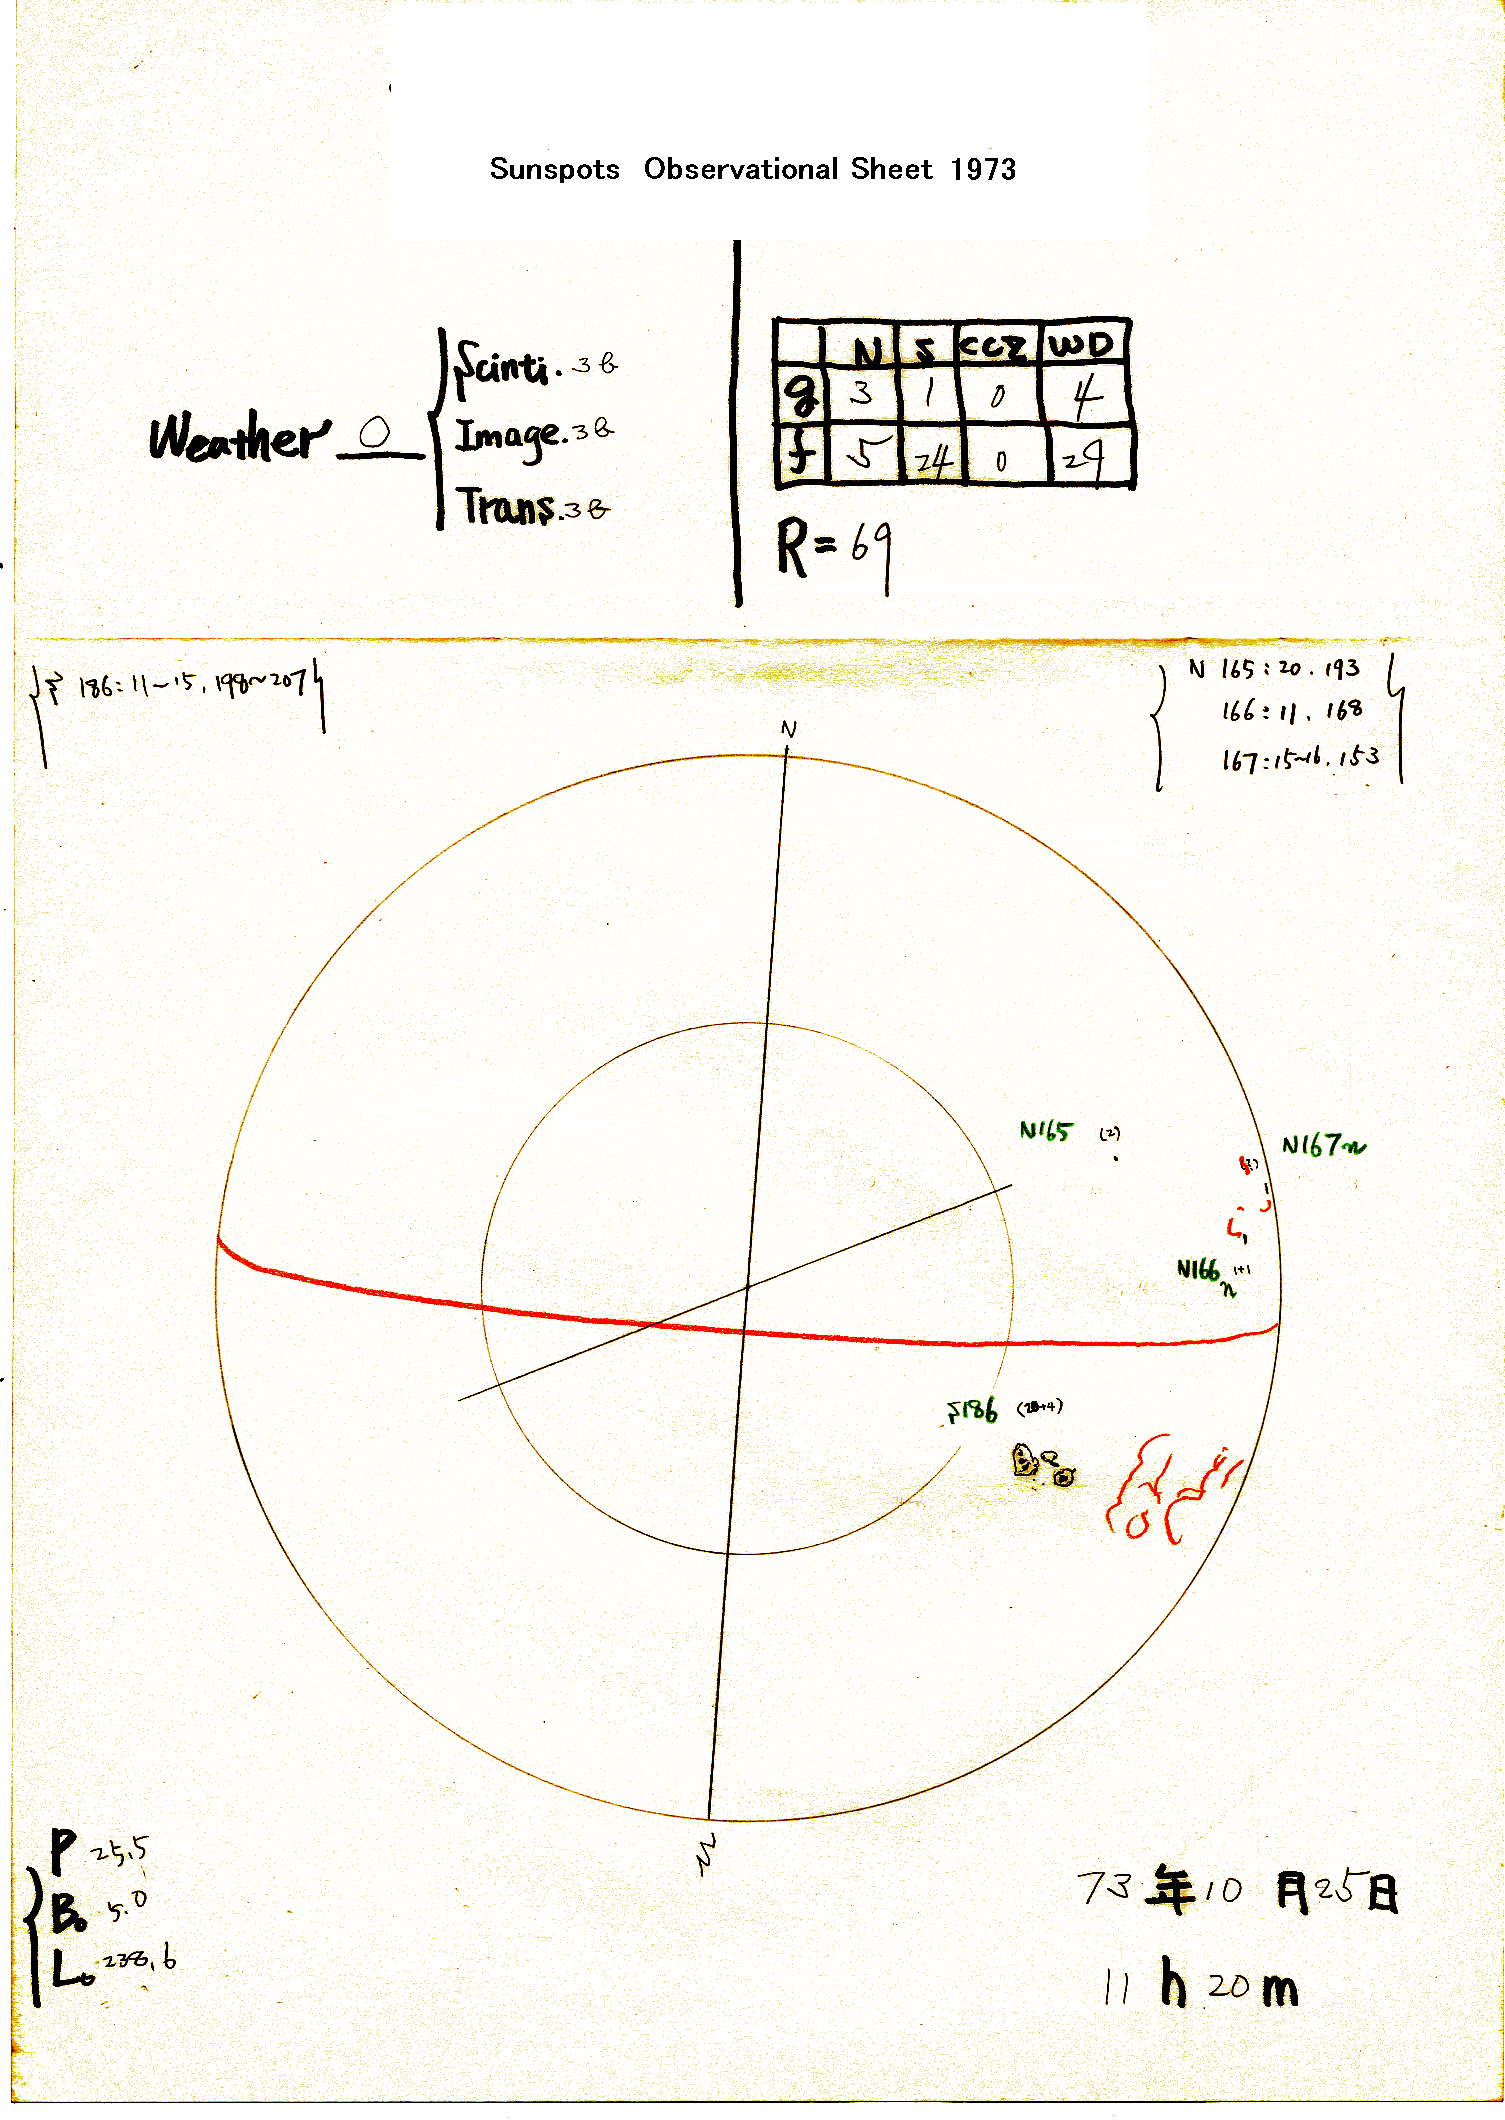 Sunspots Observational Sheet 1973
Weather O
Scinti. 3B
Image. 3B
Trans. 3B
N S CCZ WD
g 3 1 0 4
f 5 24 0 29
R = 69
S 186: 11~15, 198~207
N 165: 20. 193
166: 11. 168
167: 15~16. 153
N
N165 (2)
N167n
N166n 1+1
S186
S
P 25.5
B₀ 5.0
L₀ 238.6
73年10月25日
11 h 20 m